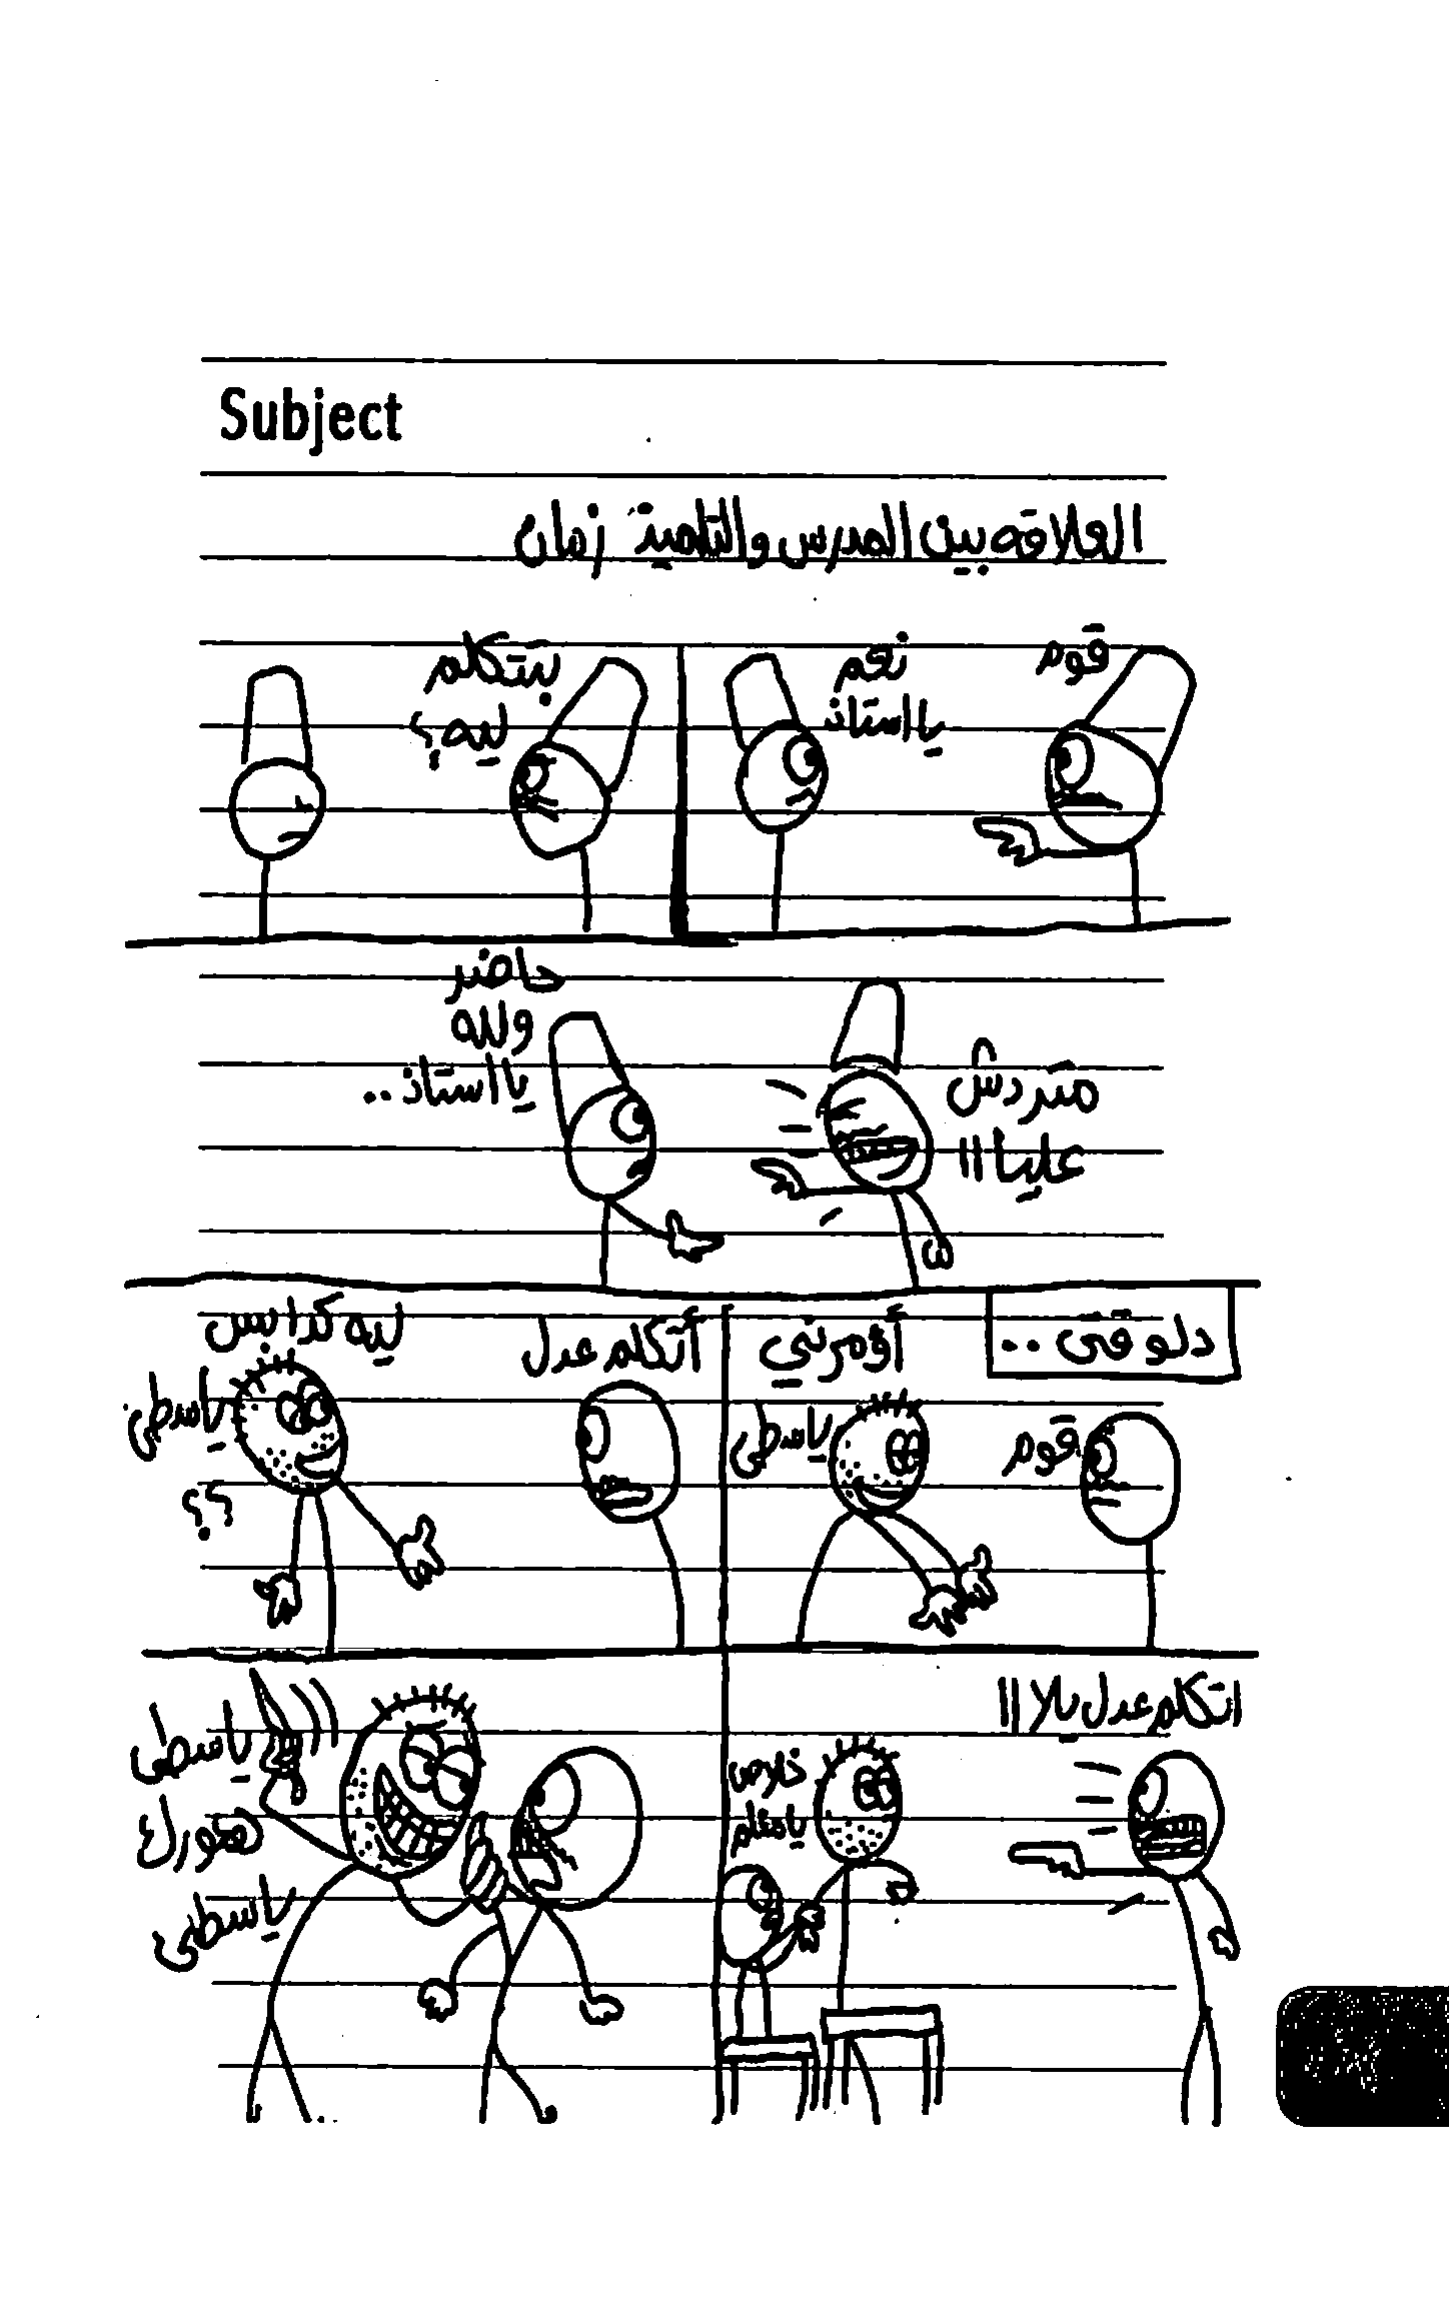 Subject
العلاقه بين المدرس والتلميذ زمان
قوم
نعم
يا استاذ
بتتكلم
ليه؟
متردش
عليا !!
حاضر
ولله
يا استاذ..
دلوقتى ..
قوم
أؤمرني
ياسطى
أتكلم عدل
ليه كدا بس
ياسطى
؟؟
اتكلم عدل يلا !!
خلاص
يا معلم
ياسطى
هعورك
ياسطى